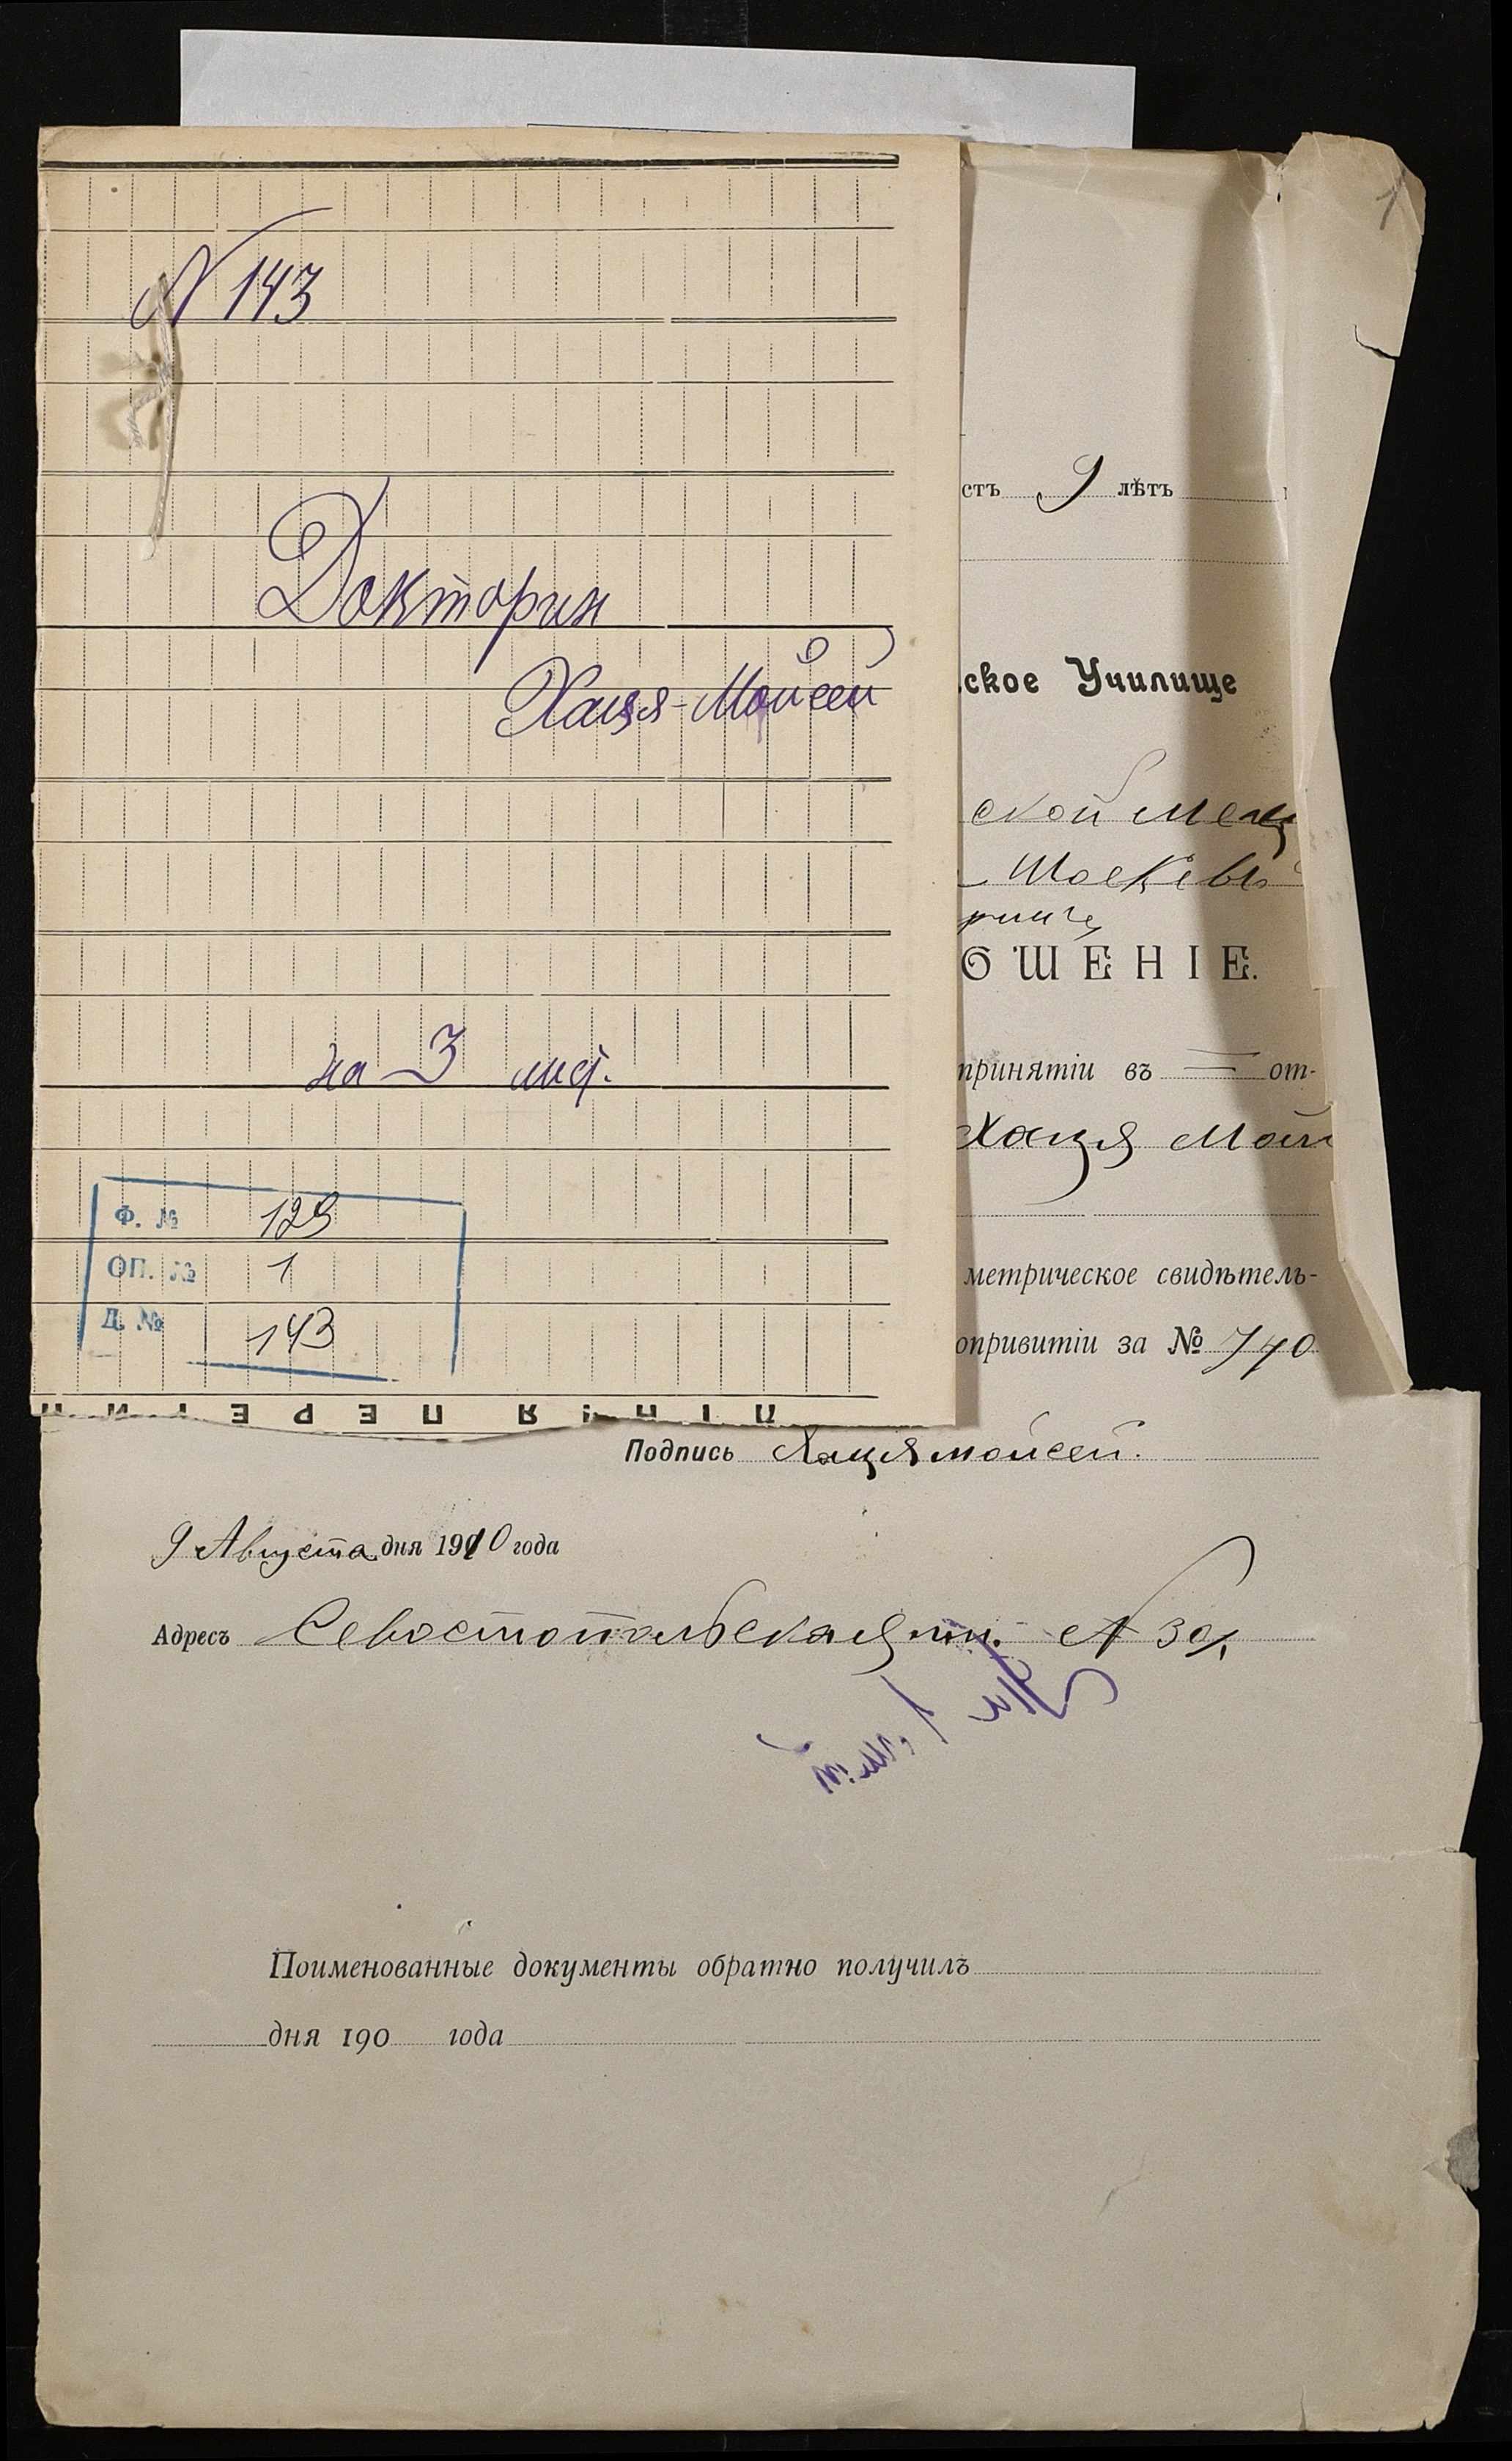 N 143
Докторин
Хация-Мойсей
на 3 лист.
Ф. № 129
ОП. № 1
Д. № 143
1
стъ 9 лѣтъ
ское Училище
ской Мещ
ринг
ОШЕНІЕ.
принятіи въ = от-
Хация Мойс
метрическое свидѣтель-
опривитіи за № 740
Подпись Хация мойсей.
9 Августа дня 1910 года
Адресъ Севостопольская № 30
Поименованные документы обратно получилъ
дня 190 года